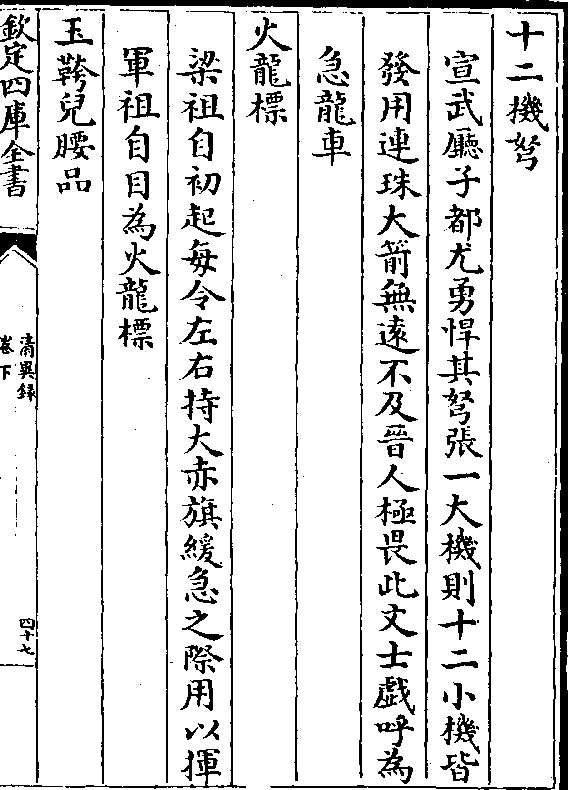 十二機弩
宣武廳子都尤勇悍其弩張一大機則十二小機皆
發用連珠大箭無遠不及晉人極畏此文士戲呼為
急龍車
火龍標
梁祖自初起每令左右持大赤旗緩急之際用以揮
軍祖自目為火龍標
玉鞶兒腰品
欽定四庫全書
清異録
卷下
四十七